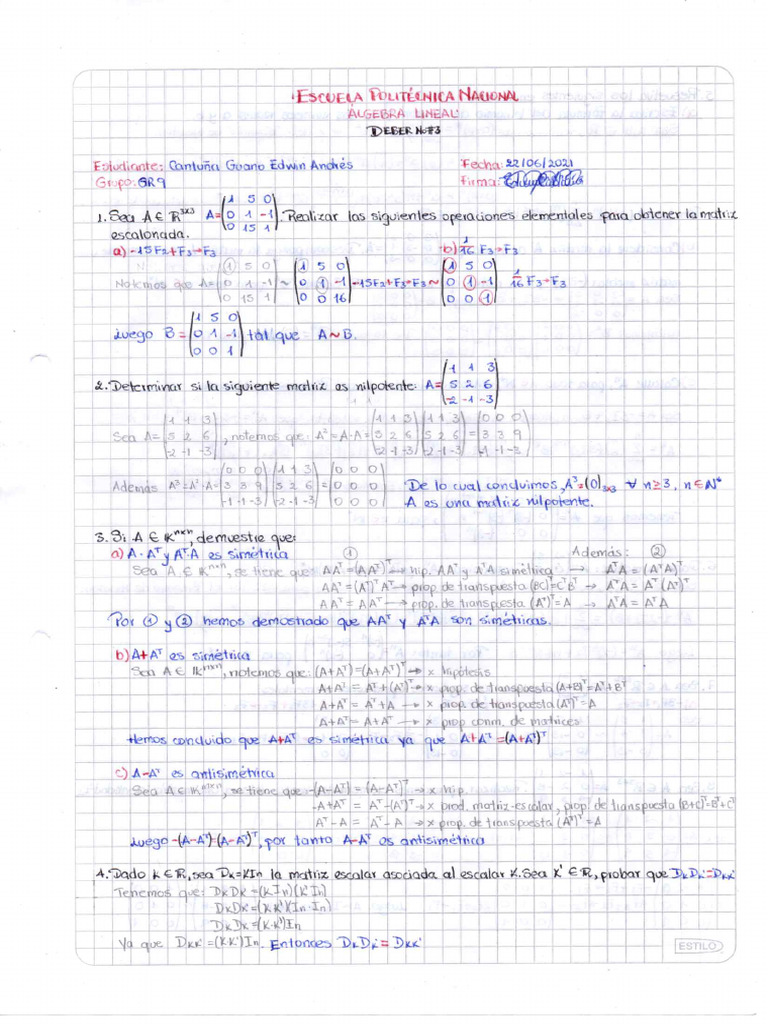 ESCUELA POLITÉCNICA NACIONAL
ÁLGEBRA LINEAL
DEBER No#3
Estudiante: Cantuña Guano Edwin Andrés Fecha: 22/06/2021
Grupo: GR9 Firma:
1. Sea A ∈ ℝ³ˣ³ A = (1 5 0; 0 1 -1; 0 15 1). Realizar las siguientes operaciones elementales para obtener la matriz
escalonada.
a) -15F₂+F₃→F₃ b) 1/16 F₃→F₃
Notemos que A = (1 5 0; 0 1 -1; 0 15 1) ~ (1 5 0; 0 1 -1; 0 0 16) -15F₂+F₃→F₃ ~ (1 5 0; 0 1 -1; 0 0 1) 1/16 F₃→F₃
Luego B = (1 5 0; 0 1 -1; 0 0 1) tal que: A ~ B.
2. Determinar si la siguiente matriz es nilpotente: A = (1 1 3; 5 2 6; -2 -1 -3)
Sea A = (1 1 3; 5 2 6; -2 -1 -3), notemos que: A² = A·A = (1 1 3; 5 2 6; -2 -1 -3)(1 1 3; 5 2 6; -2 -1 -3) = (0 0 0; 3 3 9; -1 -1 -3)
Además A³ = A²·A = (0 0 0; 3 3 9; -1 -1 -3)(1 1 3; 5 2 6; -2 -1 -3) = (0 0 0; 0 0 0; 0 0 0) De lo cual concluimos, A³ = (0)₃ₓ₃ ∀ n ≥ 3, n ∈ N*
A es una matriz nilpotente.
3. Si A ∈ 𝕂ⁿˣⁿ, demuestre que:
a) A·Aᵀ y Aᵀ·A es simétrica ① Además: ②
Sea A ∈ 𝕂ⁿˣⁿ, se tiene que: AAᵀ = (AAᵀ)ᵀ → hip. AAᵀ y AᵀA simétrica → AᵀA = (AᵀA)ᵀ
AAᵀ = (Aᵀ)ᵀAᵀ → prop. de transpuesta (BC)ᵀ = CᵀBᵀ → AᵀA = Aᵀ(Aᵀ)ᵀ
AAᵀ = AAᵀ → prop. de transpuesta (Aᵀ)ᵀ = A → AᵀA = AᵀA
Por ① y ② hemos demostrado que AAᵀ y AᵀA son simétricas.
b) A+Aᵀ es simétrica
Sea A ∈ 𝕂ⁿˣⁿ, notemos que: (A+Aᵀ) = (A+Aᵀ)ᵀ → x hipótesis
A+Aᵀ = Aᵀ+(Aᵀ)ᵀ → x prop. de transpuesta (A+B)ᵀ = Aᵀ+Bᵀ
A+Aᵀ = Aᵀ+A → x prop. de transpuesta (Aᵀ)ᵀ = A
A+Aᵀ = A+Aᵀ → x prop conm. de matrices
Hemos concluido que A+Aᵀ es simétrica ya que A+Aᵀ = (A+Aᵀ)ᵀ
c) A-Aᵀ es antisimétrica
Sea A ∈ 𝕂ⁿˣⁿ, se tiene que -(A-Aᵀ) = (A-Aᵀ)ᵀ → x hip.
-A+Aᵀ = Aᵀ-(Aᵀ)ᵀ → x prod. matriz-escalar, prop. de transpuesta (B+C)ᵀ = Bᵀ+Cᵀ
Aᵀ-A = Aᵀ-A → x prop. de transpuesta (Aᵀ)ᵀ = A
Luego -(A-Aᵀ) = (A-Aᵀ)ᵀ, por tanto A-Aᵀ es antisimétrica
4. Dado k ∈ ℝ, sea Dₖ = kIn la matriz escalar asociada al escalar k. Sea k' ∈ ℝ, probar que DₖDₖ' = Dₖₖ'
Tenemos que: DₖDₖ' = (k In)(k' In)
DₖDₖ' = (k·k')(In·In)
DₖDₖ' = (k·k')In
Ya que Dₖₖ' = (k·k')In. Entonces DₖDₖ' = Dₖₖ'
ESTILO